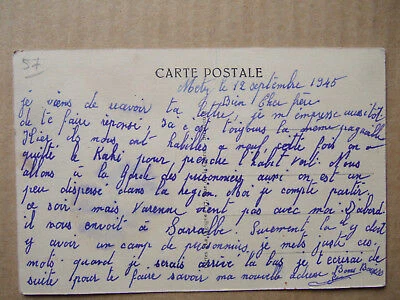 57
CARTE POSTALE
Metz, le 12 septembre 1945
Bien Cher frère
je viens de recevoir ta lettre, je m'empresse aussitot
de te faire réponse. Ici c'est toujours la même pagaille
Hier ils nous ont habillés a neuf, cette fois on a
quitté le Kaki pour prendre l'habit vert. Nous
allons à la Garde des prisonniers aussi on est un
peu dispersé dans la région. Moi je compte partir
ce soir. mais Varenne vient pas avec moi. D'abord
il nous envoit à Sarralbe. Surement la y doit
y avoir un camp de prisonniers, je mets juste ces
mots quand je serais arrivé la bas je t'écrirai de
suite pour te faire savoir ma nouvelle adresse Bons Baisers